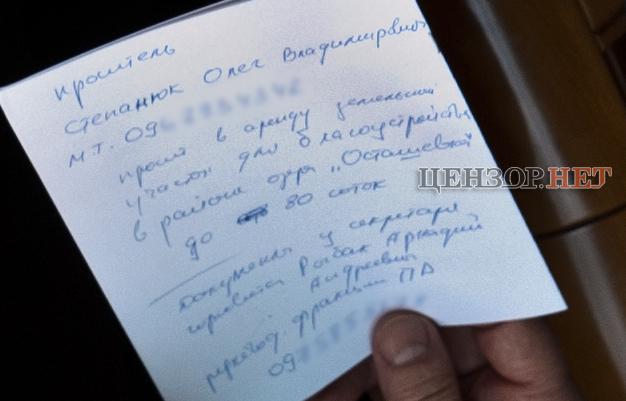 проитель
Степанюк Олег Владимирович
М.Т. 09
просит в аренду земельный
участок для благоустройства
в районе озера "Осташевкой"
до 80 соток
Документы у секретаря
горсовета Рыбак Аркадий
Андреевич
руковод. фракции ПА
09
ЦЕНЗОР.НЕТ